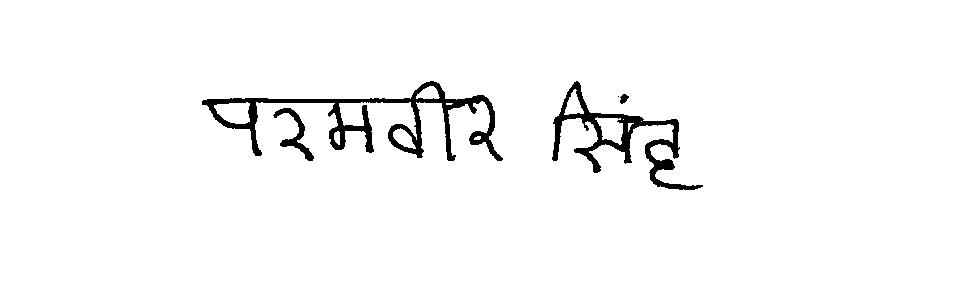 परमवीर सिंह